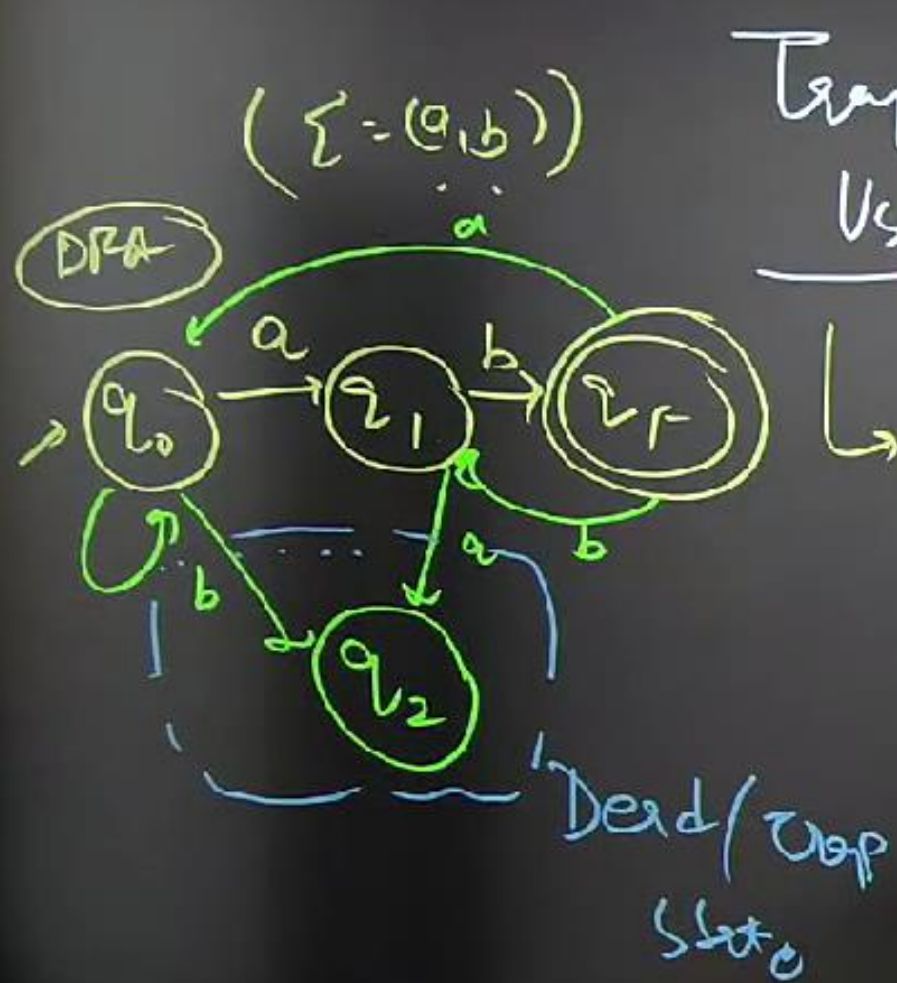 (Σ = (a,b))
DFA
a
a
b
q0
q1
qF
b
a
b
q2
Dead / trap
state